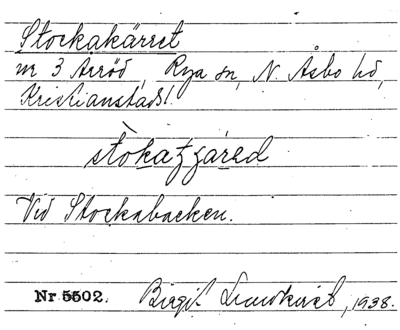 Stockakärret
nr 3 Arröd, Rya sn, N. Åsbo hd,
Kristianstads l.
Vid Stockabacken.
Nr 5502. Birgit Lundkvist, 1938.